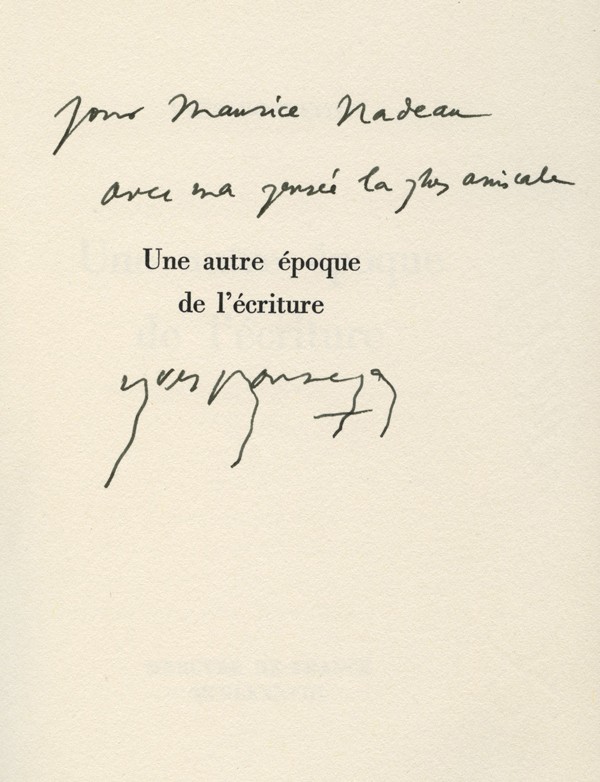 pour Maurice Nadeau
avec ma pensée la plus amicale
Une autre époque
de l'écriture
yves bonnefoy